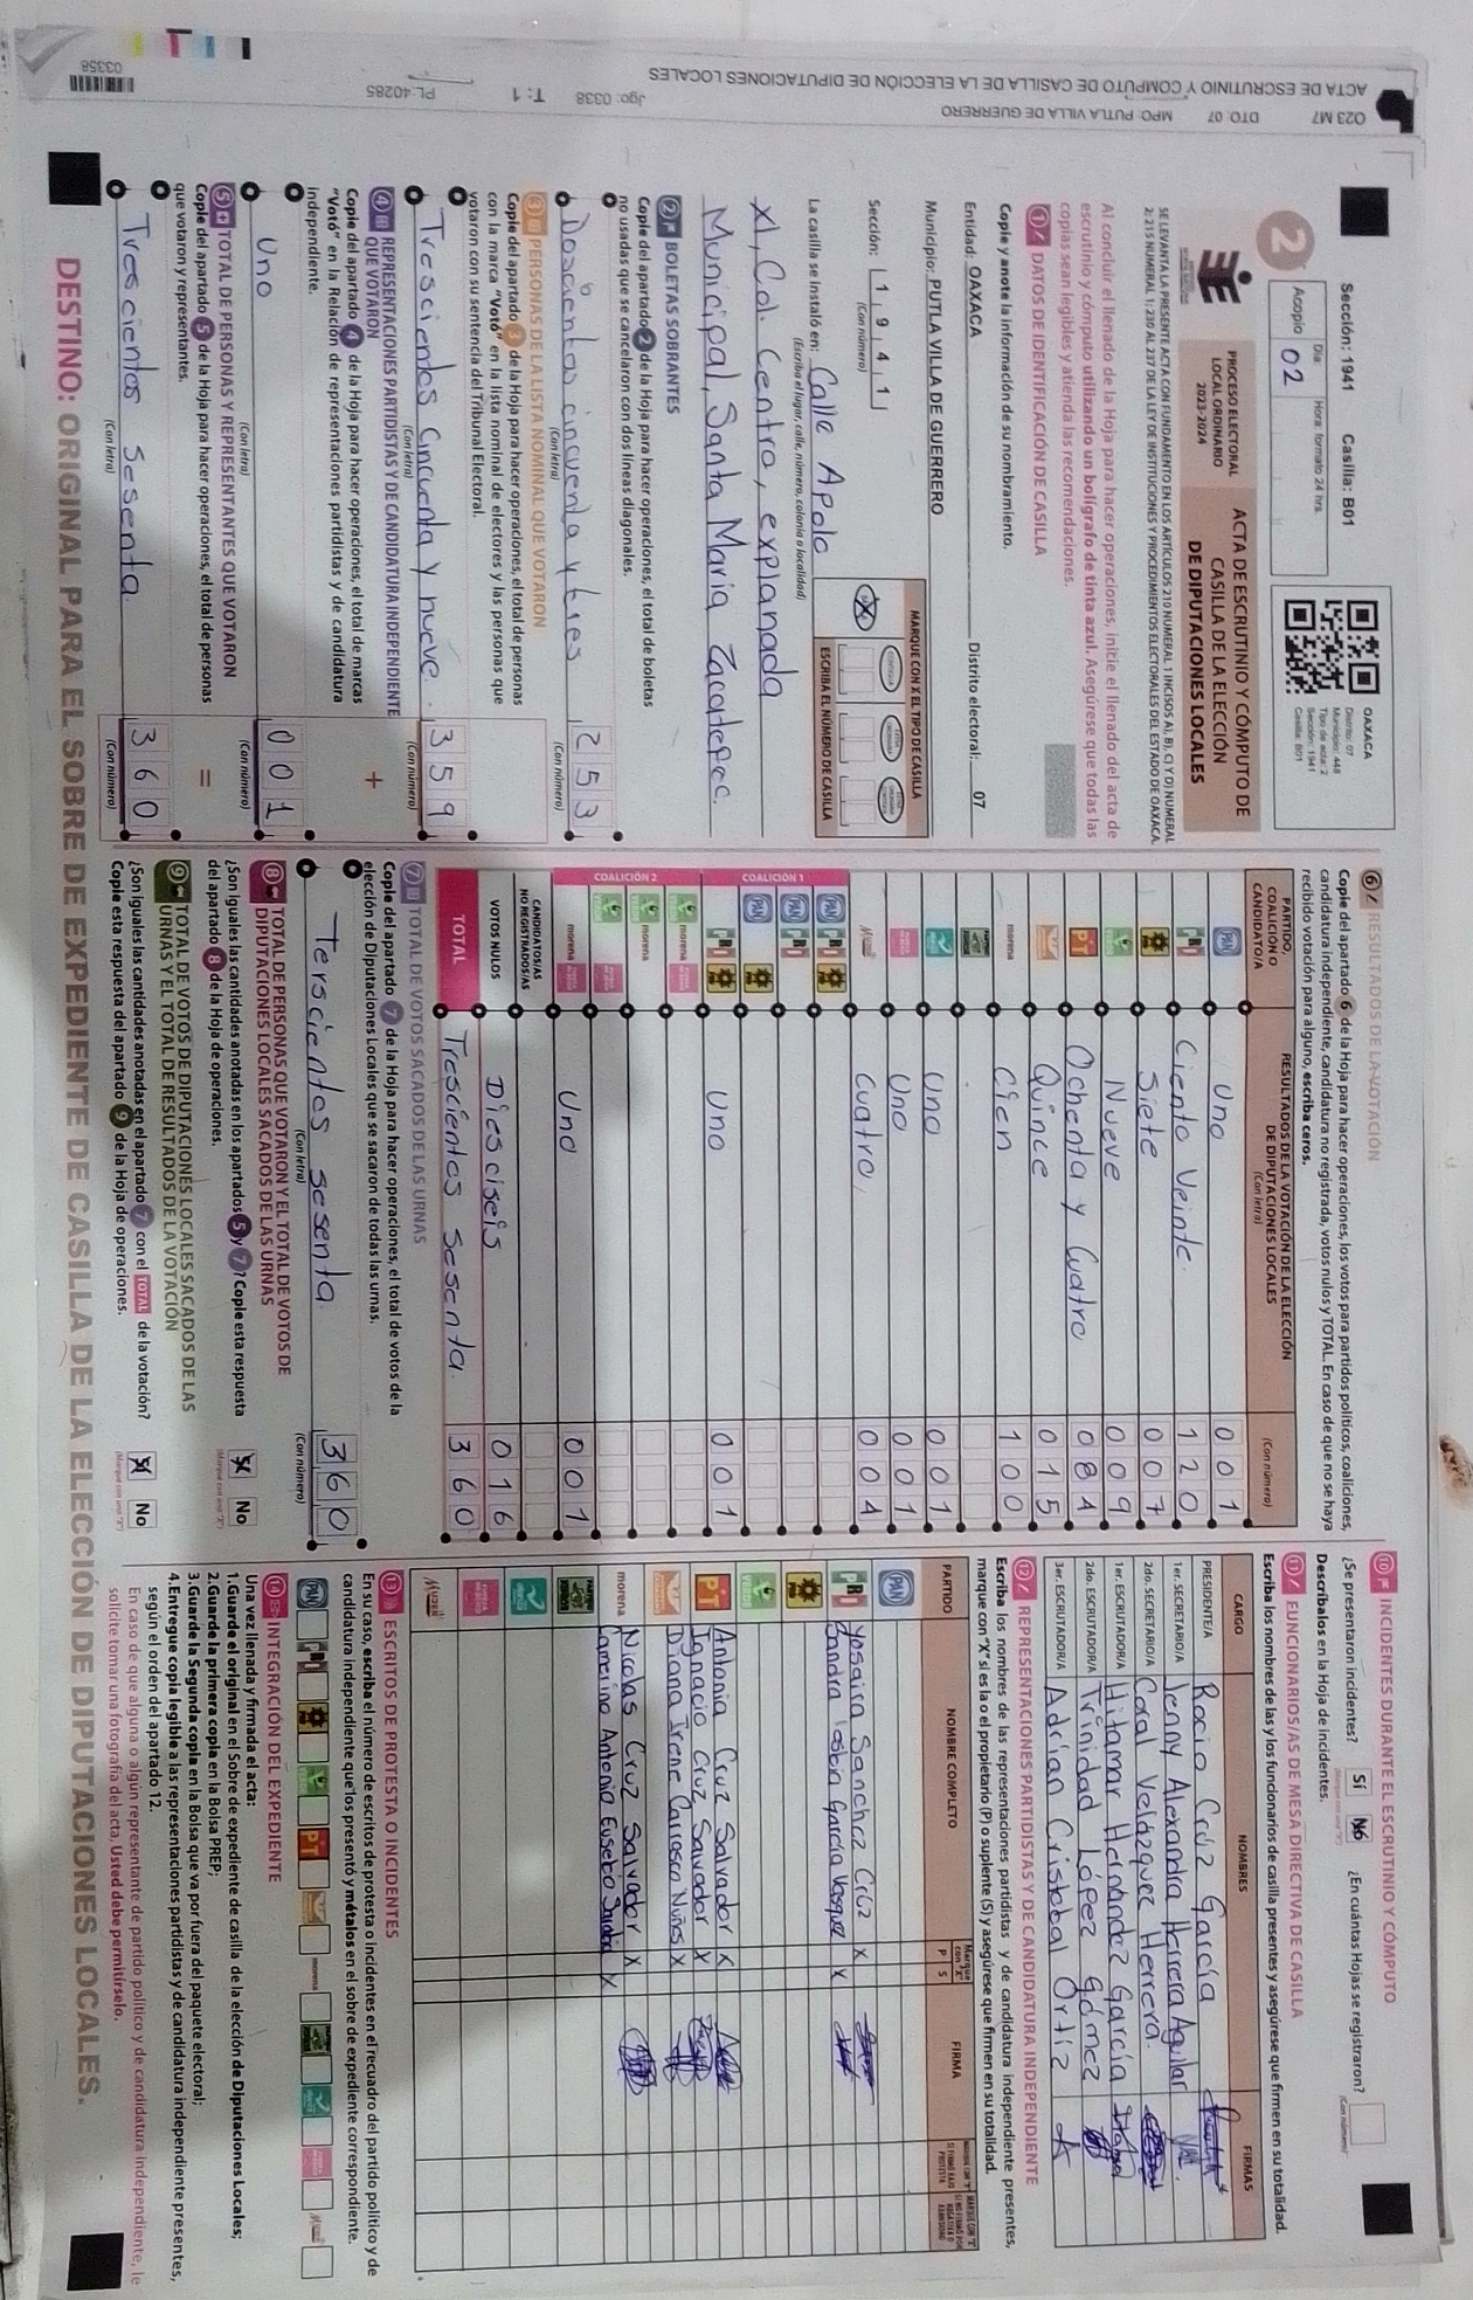 ACTA DE ESCRUTINIO Y CÓMPUTO DE CASILLA DE LA ELECCIÓN DE DIPUTACIONES LOCALES
O23 M7 DTO: 07 MPO: PUTLA VILLA DE GUERRERO
Jgo: 0338 T: 1 PL:40285
03358
Sección: 1941 Casilla: B01
OAXACA
Distrito: 07
Municipio: 448
Tipo de acta: 2
Sección: 1941
Casilla: B01
2
Día: Hora: formato 24 hrs.
Acopio 02
PROCESO ELECTORAL
LOCAL ORDINARIO
2023-2024
ACTA DE ESCRUTINIO Y CÓMPUTO DE
CASILLA DE LA ELECCIÓN
DE DIPUTACIONES LOCALES
SE LEVANTA LA PRESENTE ACTA CON FUNDAMENTO EN LOS ARTÍCULOS 210 NUMERAL 1 INCISOS A), B), C) Y D) NUMERAL
2; 215 NUMERAL 1; 230 AL 237 DE LA LEY DE INSTITUCIONES Y PROCEDIMIENTOS ELECTORALES DEL ESTADO DE OAXACA.
Al concluir el llenado de la Hoja para hacer operaciones, inicie el llenado del acta de
escrutinio y cómputo utilizando un bolígrafo de tinta azul. Asegúrese que todas las
copias sean legibles y atienda las recomendaciones.
1 DATOS DE IDENTIFICACIÓN DE CASILLA
Copie y anote la información de su nombramiento.
Entidad: OAXACA Distrito electoral: 07
Municipio: PUTLA VILLA DE GUERRERO
Sección: 1 9 4 1
(Con número)
MARQUE CON X EL TIPO DE CASILLA
ESCRIBA EL NÚMERO DE CASILLA
La casilla se instaló en: Calle Apolo
(Escriba el lugar, calle, número, colonia o localidad)
XI, Col. Centro, explanada
Municipal, Santa Maria Zacatepec.
2 BOLETAS SOBRANTES
Copie del apartado 2 de la Hoja para hacer operaciones, el total de boletas
no usadas que se cancelaron con dos líneas diagonales.
Doscientos cincuenta y tres 253
(Con letra) (Con número)
3 PERSONAS DE LA LISTA NOMINAL QUE VOTARON
Copie del apartado 3 de la Hoja para hacer operaciones, el total de personas
con la marca "Votó" en la lista nominal de electores y las personas que
votaron con su sentencia del Tribunal Electoral.
Trescientos cincuenta y nueve. 359
(Con letra) (Con número)
4 REPRESENTACIONES PARTIDISTAS Y DE CANDIDATURA INDEPENDIENTE
QUE VOTARON
Copie del apartado 4 de la Hoja para hacer operaciones, el total de marcas
"Votó" en la Relación de representaciones partidistas y de candidatura
independiente.
+
Uno 001
(Con letra) (Con número)
5 TOTAL DE PERSONAS Y REPRESENTANTES QUE VOTARON
Copie del apartado 5 de la Hoja para hacer operaciones, el total de personas
que votaron y representantes.
=
Trescientos sesenta. 360
(Con letra) (Con número)
6 RESULTADOS DE LA VOTACIÓN
Copie del apartado 6 de la Hoja para hacer operaciones, los votos para partidos políticos, coaliciones,
candidatura independiente, candidatura no registrada, votos nulos y TOTAL. En caso de que no se haya
recibido votación para alguno, escriba ceros.
PARTIDO, COALICIÓN O CANDIDATO/A
RESULTADOS DE LA VOTACIÓN DE LA ELECCIÓN DE DIPUTACIONES LOCALES
(Con letra) (Con número)
PAN Uno 001
PRI Ciento Veinte 120
Siete 007
VERDE Nueve 009
PT Ochenta y Cuatro 084
Quince 015
morena Cien 100
Uno 001
Uno 001
Cuatro 004
COALICIÓN 1
PAN PRI
PAN PRI
PAN
PRI Uno 001
COALICIÓN 2
morena
morena
morena Uno 001
CANDIDATOS/AS
NO REGISTRADOS/AS
VOTOS NULOS Dieseiseis 016
TOTAL Trescientos sesenta. 360
7 TOTAL DE VOTOS SACADOS DE LAS URNAS
Copie del apartado 7 de la Hoja para hacer operaciones, el total de votos de la
elección de Diputaciones Locales que se sacaron de todas las urnas.
Terscientos sesenta 360
(Con letra) (Con número)
8 TOTAL DE PERSONAS QUE VOTARON Y EL TOTAL DE VOTOS DE
DIPUTACIONES LOCALES SACADOS DE LAS URNAS
¿Son iguales las cantidades anotadas en los apartados 5 y 7? Copie esta respuesta
del apartado 8 de la Hoja de operaciones.
No
9 TOTAL DE VOTOS DE DIPUTACIONES LOCALES SACADOS DE LAS
URNAS Y EL TOTAL DE RESULTADOS DE LA VOTACIÓN
¿Son iguales las cantidades anotadas en el apartado 7 con el TOTAL de la votación?
Copie esta respuesta del apartado 9 de la Hoja de operaciones.
No
10 INCIDENTES DURANTE EL ESCRUTINIO Y CÓMPUTO
¿Se presentaron incidentes? Sí No ¿En cuántas Hojas se registraron?
Descríbalos en la Hoja de incidentes.
11 FUNCIONARIOS/AS DE MESA DIRECTIVA DE CASILLA
Escriba los nombres de las y los funcionarios de casilla presentes y asegúrese que firmen en su totalidad.
CARGO NOMBRES FIRMAS
PRESIDENTE/A Rocio Crúz García
1er. SECRETARIO/A Jenny Alexandra Herrera Aguilar
2do. SECRETARIO/A Coral Velázquez Herrera.
1er. ESCRUTADOR/A Hitamar Hernández García
2do. ESCRUTADOR/A Trinidad López Gómez
3er. ESCRUTADOR/A Adrían Cristobal Ortíz
12 REPRESENTACIONES PARTIDISTAS Y DE CANDIDATURA INDEPENDIENTE
Escriba los nombres de las representaciones partidistas y de candidatura independiente presentes,
marque con "X" si es la o el propietario (P) o suplente (S) y asegúrese que firmen en su totalidad.
PARTIDO NOMBRE COMPLETO Marque con "X" P S FIRMA
PAN
PRI Yosaira Sanchez Crúz X
Sandra García Vasquez X
VERDE
PT Antonia Cruz Salvador X
Ignacio Cruz Savador X
Diana Irene Carrasco Nuñes X
morena Nicolas Cruz Salvador X
Camerino Antonio Eusebio X
13 ESCRITOS DE PROTESTA O INCIDENTES
En su caso, escriba el número de escritos de protesta o incidentes en el recuadro del partido político y de
candidatura independiente que los presentó y métalos en el sobre de expediente correspondiente.
PAN PRI VERDE PT morena
14 INTEGRACIÓN DEL EXPEDIENTE
Una vez llenada y firmada el acta:
1.Guarde el original en el Sobre de expediente de casilla de la elección de Diputaciones Locales;
2.Guarde la primera copia en la Bolsa PREP;
3.Guarde la Segunda copia en la Bolsa que va por fuera del paquete electoral;
4.Entregue copia legible a las representaciones partidistas y de candidatura independiente presentes,
según el orden del apartado 12.
En caso de que alguna o algún representante de partido político y de candidatura independiente, le
solicite tomar una fotografía del acta, Usted debe permitírselo.
DESTINO: ORIGINAL PARA EL SOBRE DE EXPEDIENTE DE CASILLA DE LA ELECCIÓN DE DIPUTACIONES LOCALES.